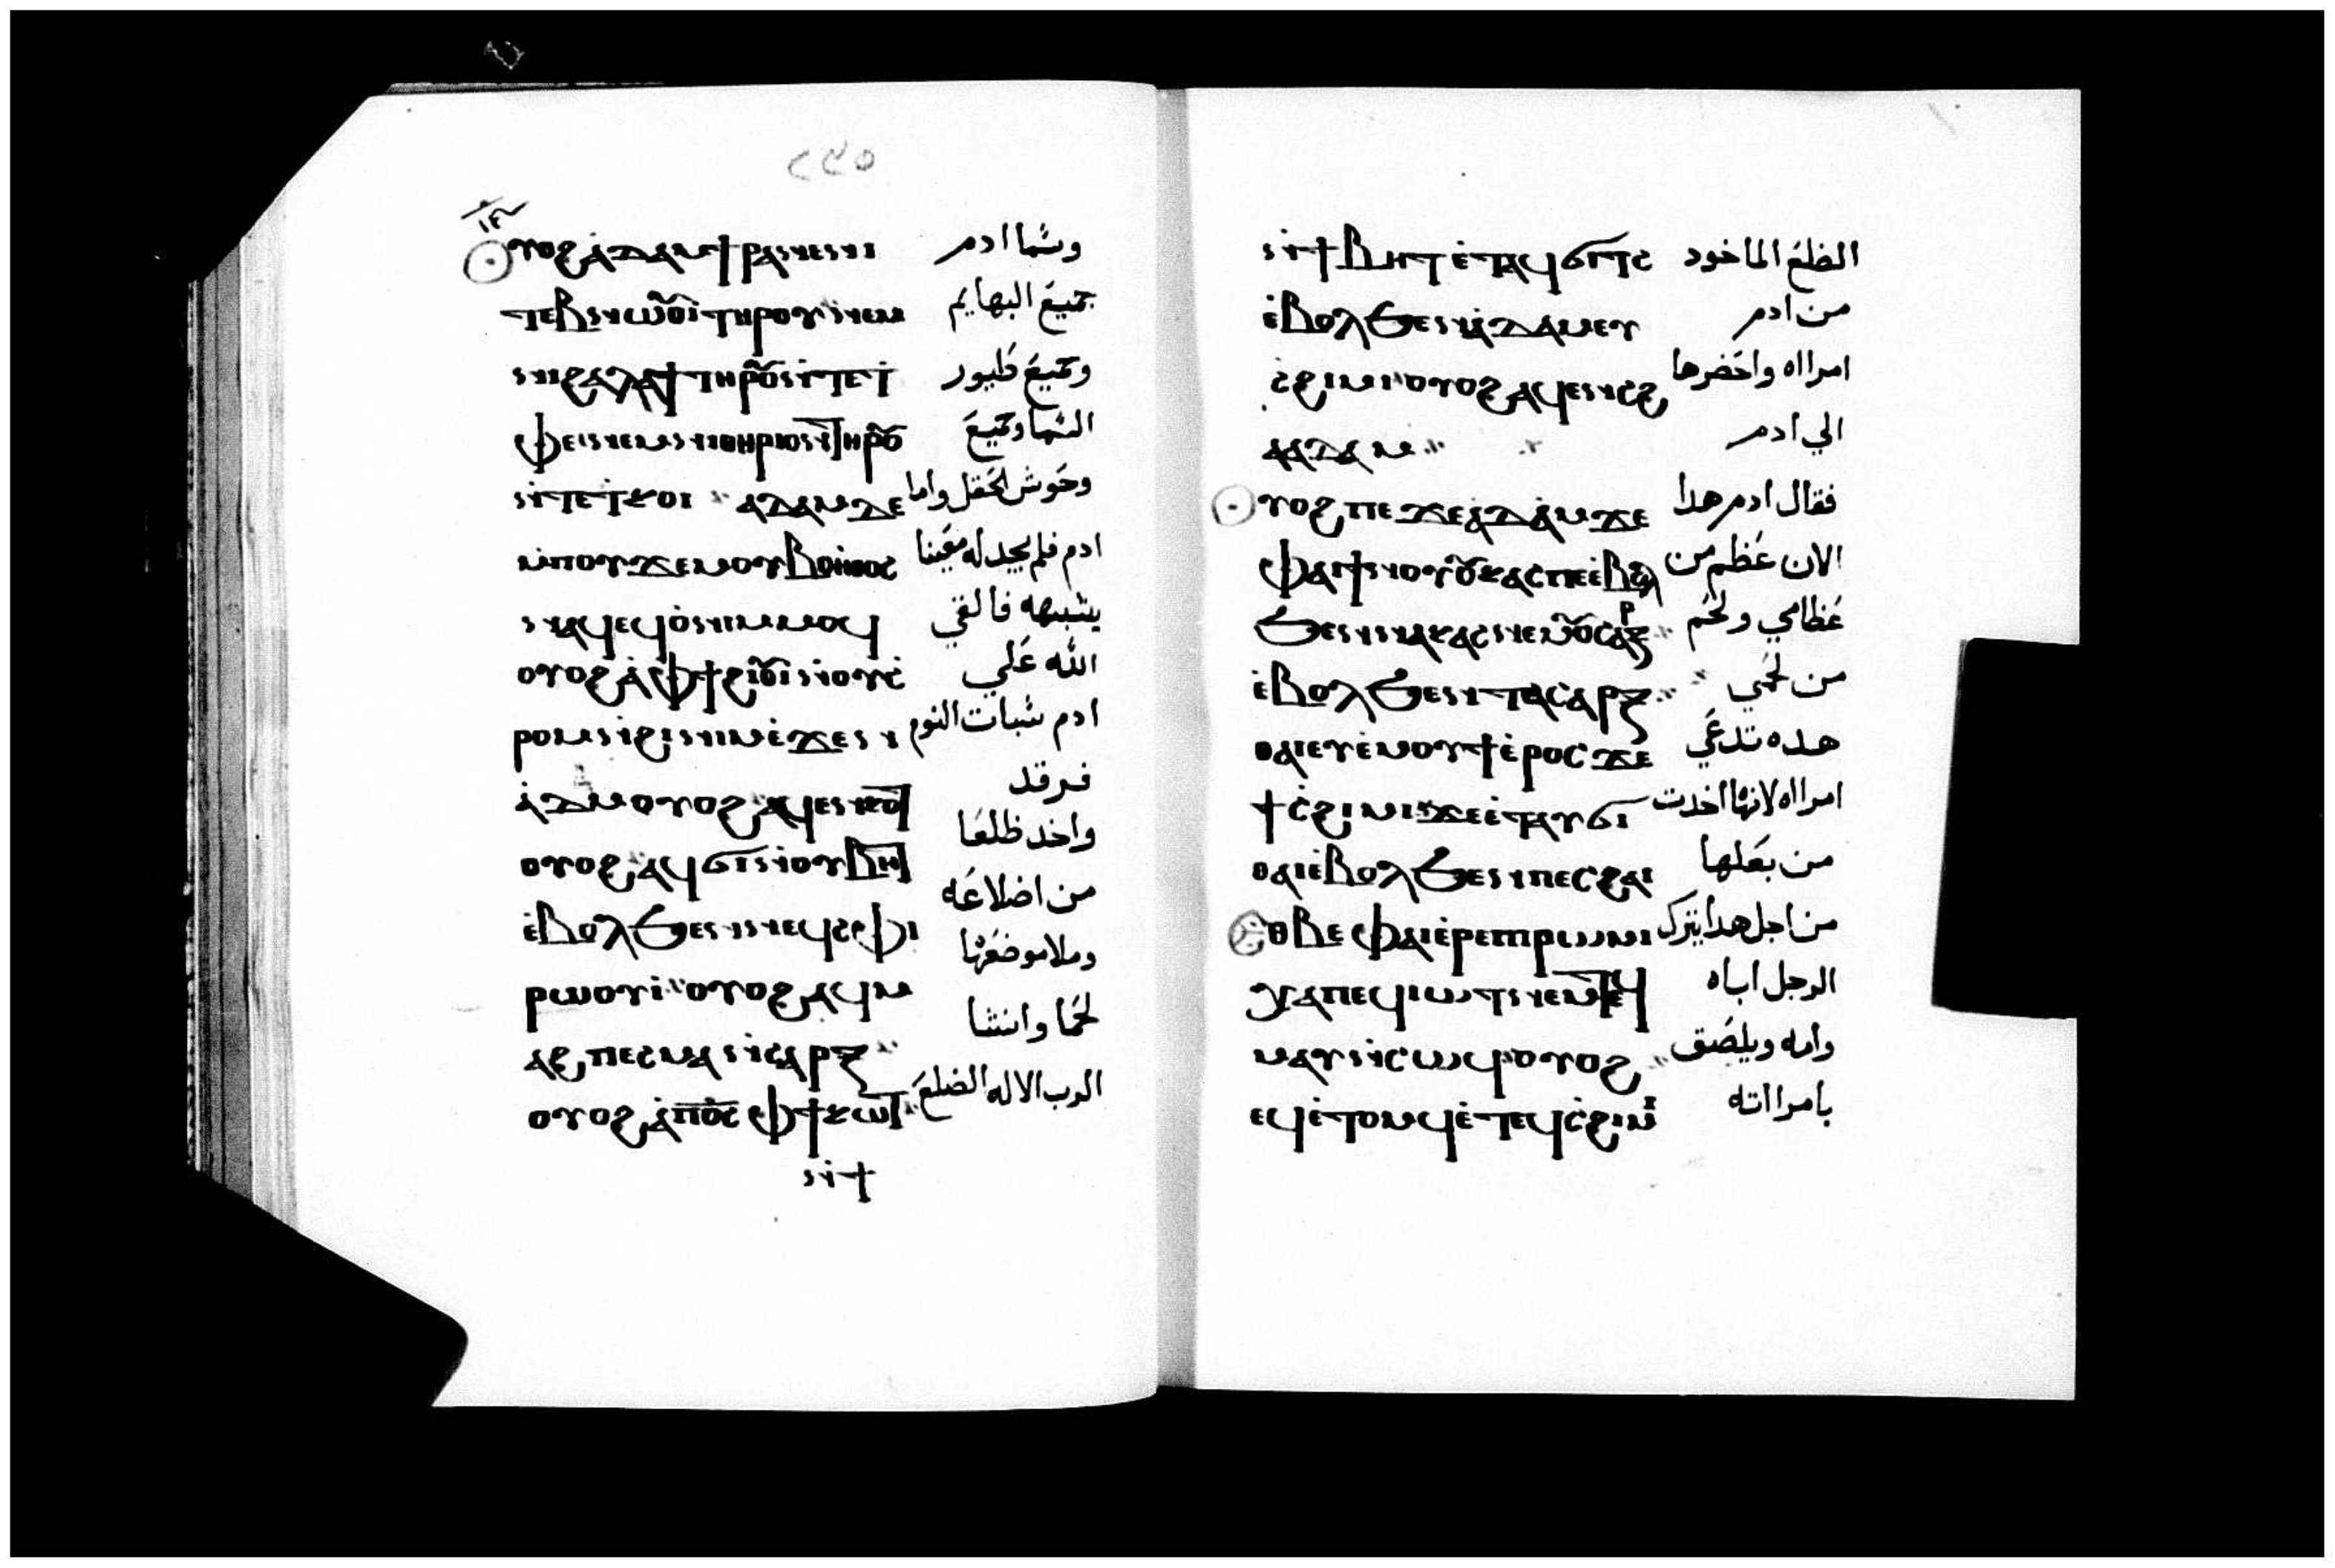 ⲟⲩⲟϩ ⲁ̇ⲇⲁⲙ ϯⲣⲁⲛ ⲉⲛⲓ وسما ادم
ⲧⲉⲃⲛⲱⲟⲩⲓ̇ ⲧⲏⲣⲟⲩ ⲛⲉⲙ جميع البهايم
ⲛⲓϩⲁⲗⲁϯ ⲧⲏⲣⲟⲩ ⲛ̇ⲧⲉ ⲧ̇ وجميع طيور
ⲫⲉ ⲛⲉⲙ ⲛⲓⲑⲏⲣⲓⲟⲛ ⲧⲏⲣⲟⲩ السما وجميع
ⲛ̇ⲧⲉ ⲧ̇ⲕⲟⲓ ⲁⲇⲁⲙ ⲇⲉ وحوش الحقل واما
ⲙ̇ⲡⲟⲩϫⲉⲙ ⲟⲩⲃⲟⲏ̇ⲑⲟⲥ ادم فلم يجد له معينا
ⲛⲁϥ ⲉϥⲟ̇ⲛⲓ ⲙⲙⲟϥ يشبهه فالقي
ⲟⲩⲟϩ ⲁ̇ ⲫϯ ϩⲓⲟⲩⲓ ⲛ̇ⲟⲩⲥ̇ الله علي
ⲣⲟⲙ ⲛ̇ϩⲓⲛⲓⲙ ⲉ̇ϫⲉⲛ ادم شبات النوم
ⲁ̇ⲇⲙ ⲟⲩⲟϩ ⲁϥⲉⲛⲕⲟⲧ فرقد
ⲟⲩⲟϩ ⲁϥϭⲓ ⲛ̇ⲟⲩⲃⲏⲧ واخد ظلعا
ⲉ̇ⲃⲟⲗ ϧⲉⲛ ⲛⲉϥⲥⲫⲓ من اضلاعه
ⲣⲱⲟⲩⲓ̇ ⲟⲩⲟϩ ⲁϥⲙ وملا موضعها
ⲁϩ ⲡⲉⲥⲙⲁ ⲛ̇ⲥⲁⲣⲝ لحما وانشا
ⲟⲩⲟϩ ⲁ̇ ⲡⲟ̅ⲥ̅ ⲫϯ ⲕⲱⲧ الرب الاله الضلع
ⲛ̇ϯ
ⲛ̇ϯⲃⲏⲧ ⲉ̇ⲧⲁϥϭⲓⲧⲥ الظلع الماخود
ⲉ̇ⲃⲟⲗ ϧⲉⲛ ⲁ̇ⲇⲁⲙ ⲉⲩ من ادم
ⲥ̇ϩⲓⲙⲓ ⲟⲩⲟϩ ⲁϥⲉⲛⲥ ϩ امرااه واحضرها
ⲁ ⲁⲇⲁⲙ الي ادم
ⲟⲩⲟϩ ⲡⲉϫⲉ ⲁ̇ⲇⲁ̇ⲙ ϫⲉ فقال ادم هدا
ⲫⲁⲓ ϯⲛⲟⲩ ⲟⲩⲕⲁⲥ ⲡⲉ ⲉ̇ⲃⲟⲗ الان عظم من
ϧⲉⲛ ⲛⲁⲕⲁⲥ ⲛⲉⲙ ⲟⲩⲥⲁⲣⲝ عظامي ولحم
ⲉ̇ⲃⲟⲗ ϧⲉⲛ ⲧⲁⲥⲁⲣⲝ من لحمي
ⲑⲁⲓ ⲉⲩⲉ̇ⲙⲟⲩϯ ⲉ̇ⲣⲟⲥ ϫⲉ هده تدعي
ϯⲥ̇ϩⲓⲙⲓ ϫⲉ ⲉ̇ⲧⲁⲩϭⲓ امرااه لانها اخدت
ⲑⲁⲓ ⲉ̇ⲃⲟⲗ ϧⲉⲛ ⲡⲉⲥϩⲁⲓ من بعلها
ⲉⲑⲃⲉ ⲫⲁⲓ ⲉ̇ⲣⲉ ⲡⲓⲣⲱⲙⲓ من اجل هدا يترك
ⲭⲁ ⲡⲉϥⲓⲱⲧ ⲛⲉⲙ ⲧⲉϥ الرجل اباه
ⲙⲁⲩ ⲛ̇ⲥⲱϥ ⲟⲩⲟϩ وامه ويلصق
ⲉϥⲉ̇ⲧⲟⲙϥ ⲉ̇ⲧⲉϥⲥ̇ϩⲓⲙⲓ بامرااته